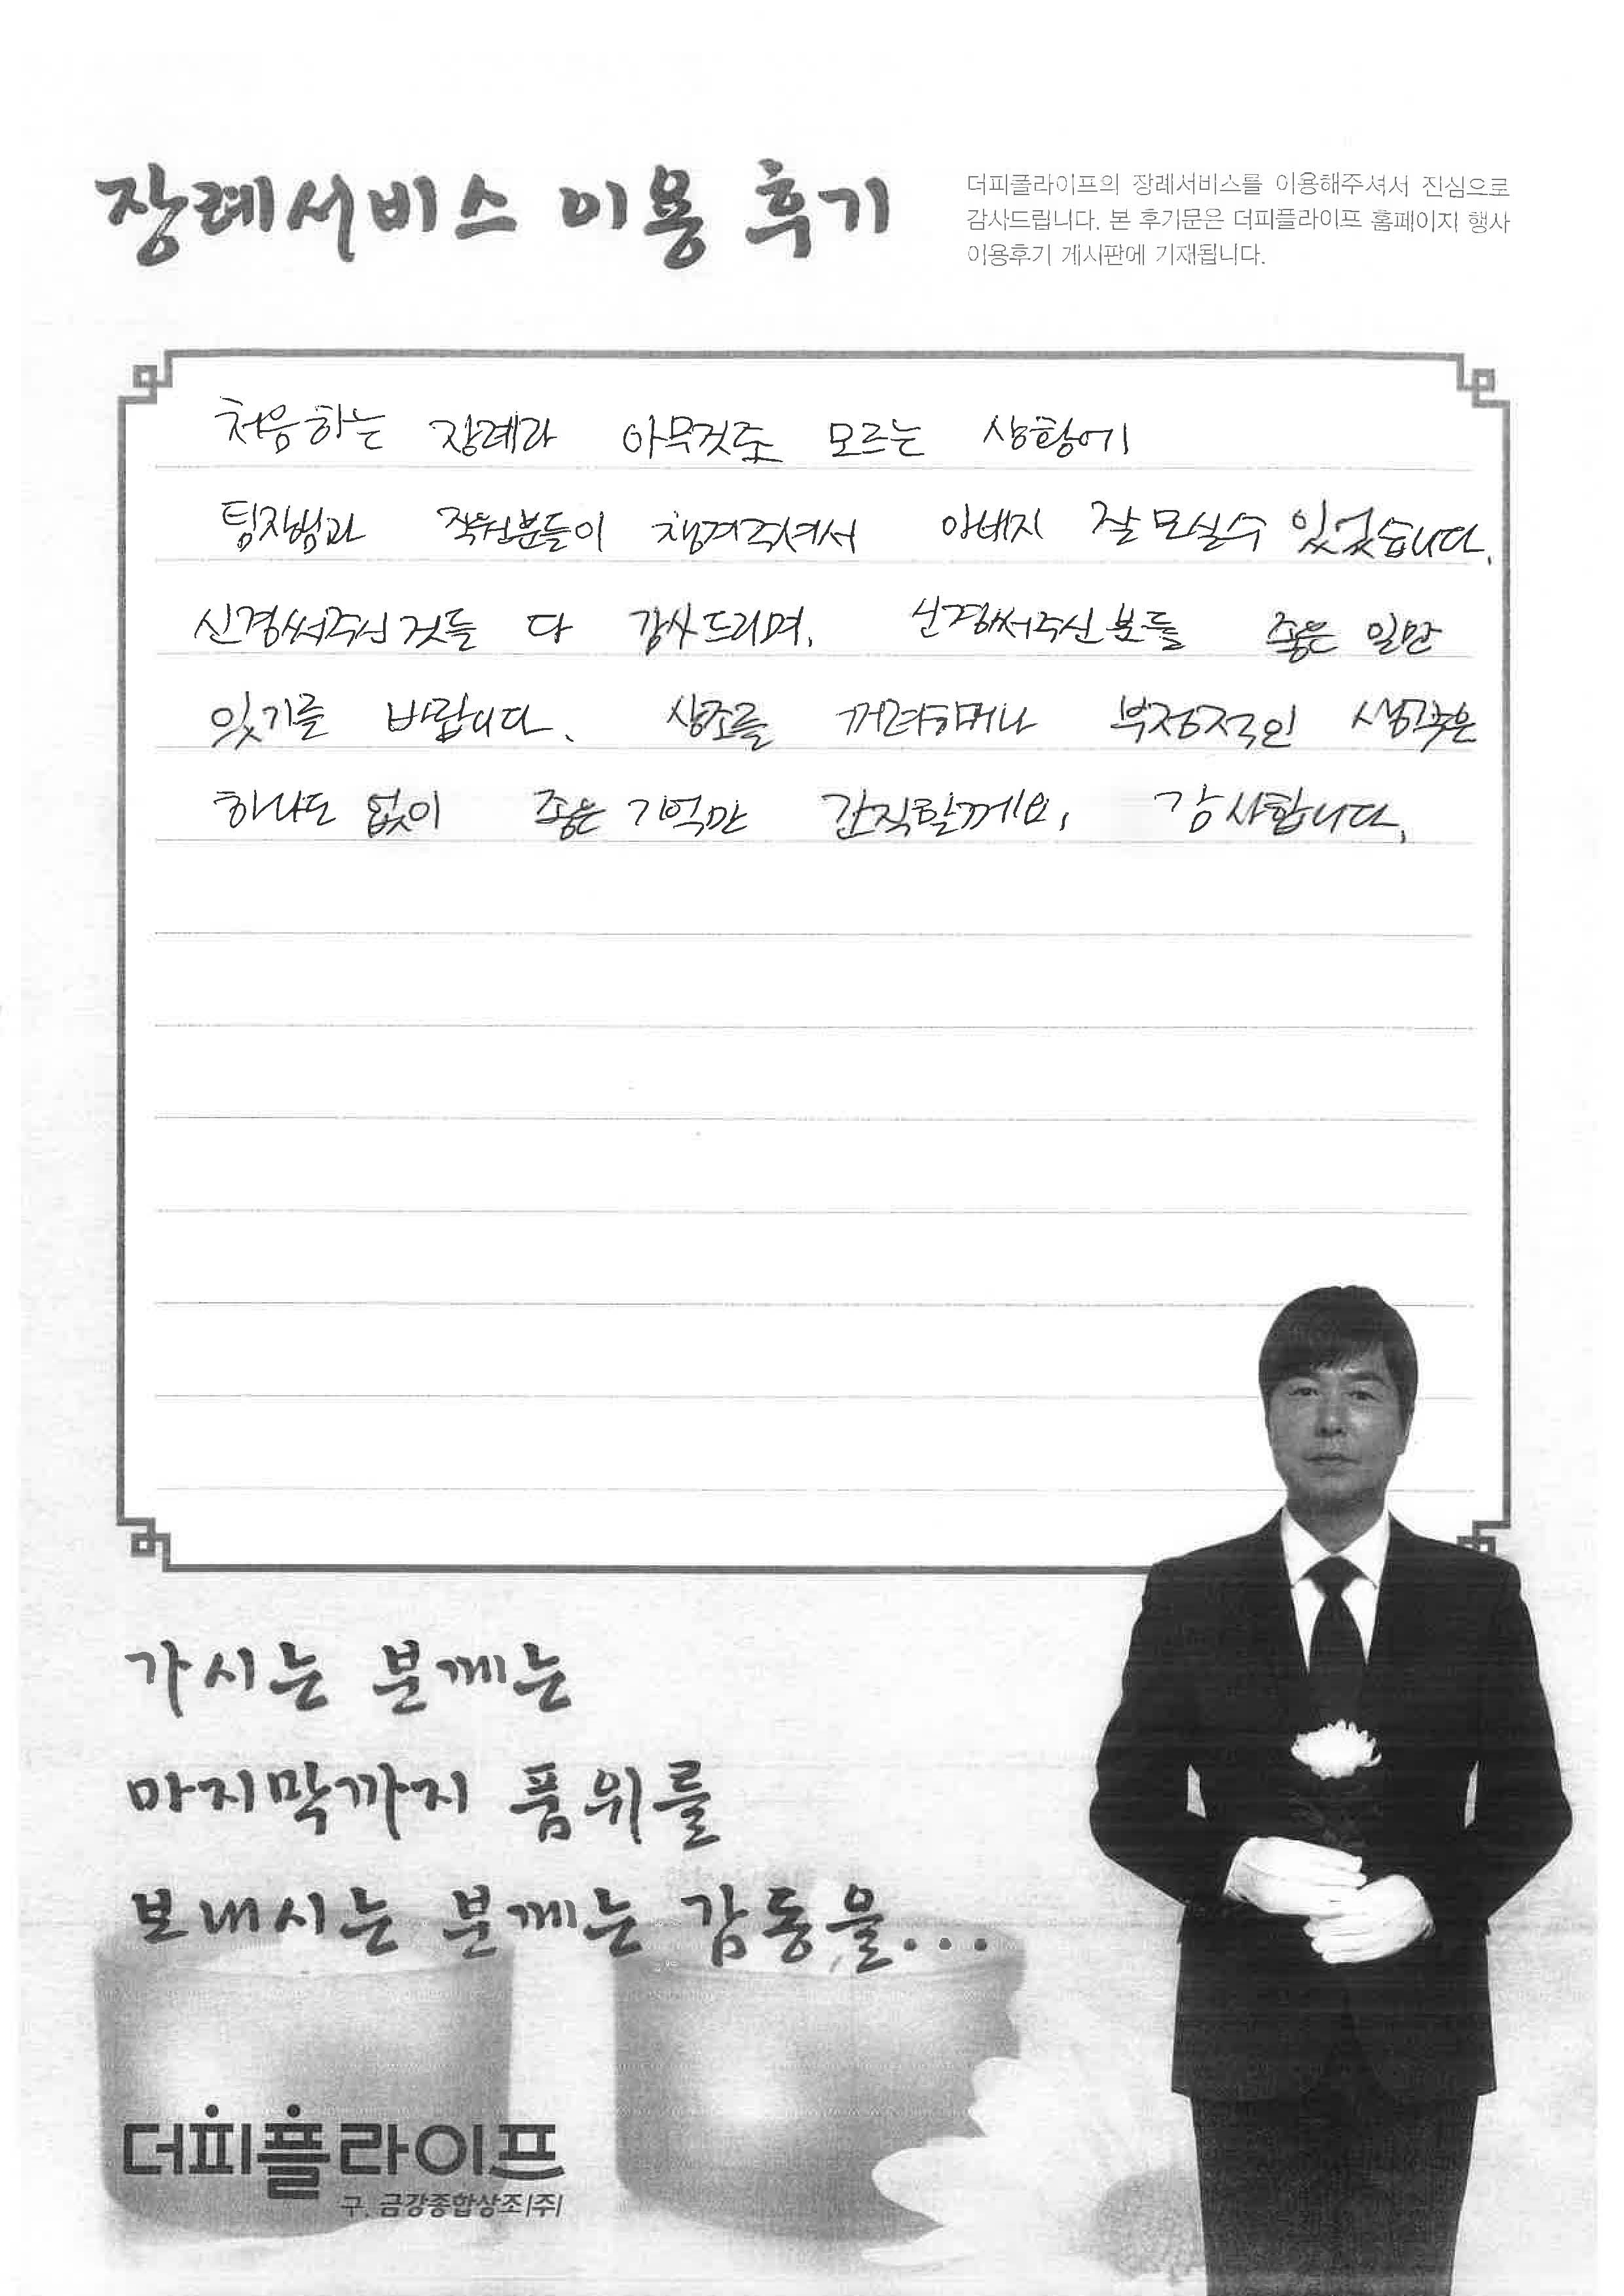 장례서비스 이용 후기
더피플라이프의 장례서비스를 이용해주셔서 진심으로
감사드립니다. 본 후기문은 더피플라이프 홈페이지 행사
이용후기 게시판에 기재됩니다.
처음하는 장례라 아무것도 모르는 상황에
팀장님과 직원분들이 챙겨주셔서 아버지 잘 모실수 있었습니다.
신경써주신것들 다 감사드리며, 신경써주신분들 좋은 일만
있기를 바랍니다. 상조를 꺼려하며나 부정적인 생각은
하나도 없이 좋은 기억만 간직할께요, 감사합니다.
가시는 분께는
마지막까지 품위를
보내시는 분께는 감동을...
더피플라이프
구. 금강종합상조|주|